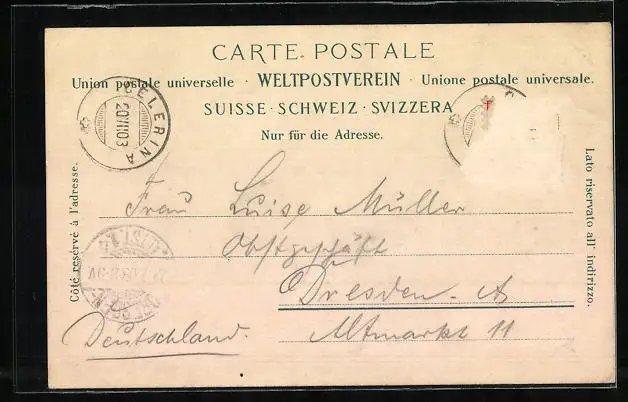 CARTE POSTALE
Union postale universelle · WELTPOSTVEREIN · Unione postale universale.
SUISSE · SCHWEIZ · SVIZZERA
Nur für die Adresse.
CELERINA
20 VII 03
Côté réservé à l'adresse.
Lato riservato all' indirizzo.
Frau Luise Müller
Obstgeschäft
Dresden. A
Altmarkt 11
Deutschland.